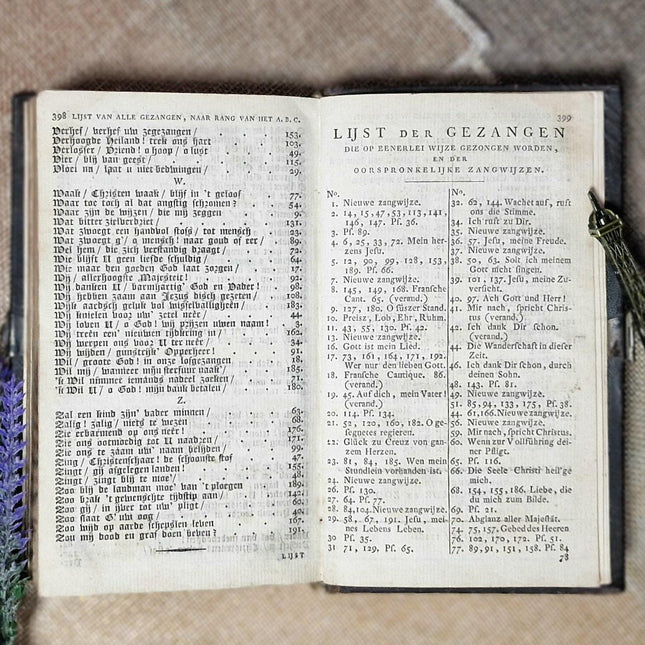 398 LIJST VAN ALLE GEZANGEN, NAAR RANG VAN HET A. B. C.
Verhef/ verhef uw zegezangen/ 153.
Verhoogde Heiland! trek ons hart 103.
Verlosser/ Vriend! o hoop/ o lust 49.
Vier/ blij van geest/ 115.
Vloei nu/ laat u niet bedwingen/ 29.
W.
Waak/ Christen waak/ blijf in 't geloof 77.
Waar toe toch al dat angstig schromen? 54.
Waar zijn de wijzen/ die mij zeggen 9.
Wat bitter zielverdriet/ 131.
Wat zwoegt een handvol stofs/ tot mensch 23.
Wat zwoegt g'/ o mensch! naar goud of eer/ 89.
Wel hem/ die zich verstandig draagt 72.
Wie blijft U geen liefde schuldig/ 64.
Wie maar den goeden God laat zorgen 17.
Wij/ allerhoogste Majesteit! 92.
Wij danken U/ barmhartig' God en Vader! 98.
Wij hebben zaam aan Jezus disch gezeten/ 108.
Wijk aardsch geluk vol wisselvalligheên/ 183.
Wij knielen voor uw' zetel neêr/ 44.
Wij loven U/ o God! wij prijzen uwen naam! 3.
Wij treên een' nieuwen tijdkring in/ 162.
Wij werpen ons voor U ter neêr/ 34.
Wij wijden/ gunstrijk' Opperheer! 91.
Wil/ groote God! in onze lofgezangen 18.
Wil mij/ wanneer mijn sterfuur naakt/ 185.
'k Wil nimmer iemands nadeel zoeken/ 71.
'k Wil U/ o God! mijn dank betalen/ 180.
Z.
Zal een kind zijn' vader minnen/ 63.
Zalig! zalig/ niets te wezen 68.
Zie erbarmend op ons neêr! 176.
Zie ons ootmoedig tot U naadren/ 171.
Zie ons te zaam uw' naam belijden/ 99.
Zing/ Christenschaar! de schoonste stof 47.
Zingt/ afgelegen landen! 155.
Zingt/ zingt blij te moê/ 48.
Zoo blij de landman moê van 't ploegen 189.
Zoo braak 't gewenschte tijdstip aan/ 142.
Zoo gij/ in ijver tot uw' pligt/ 60.
Zoo slaat G' uw oog/ 40.
Zoo wijd op aarde schepslen leven 167.
Zou mij dood en graf doen beven? 191.
LIJST
399
LIJST DER GEZANGEN
DIE OP EENERLEI WIJZE GEZONGEN WORDEN,
EN DER
OORSPRONKELIJKE ZANGWIJZEN.
No.
1. Nieuwe zangwijze.
2. 14, 15, 47, 53, 113, 141,
146, 147. Pf. 36.
3. Pf. 89.
4. 6, 25, 33, 72. Mein her-
zens Jesu.
5. 12, 90, 99, 128, 153,
189. Pf. 66.
7. Nieuwe zangwijze.
8. 145, 149, 168. Fransche
Cant. 65. (vermd.)
9. 127, 180. O füszer Stand.
10. Preisz, Lob, Ehr, Ruhm.
11. 43, 55, 130. Pf. 42.
13. Nieuwe zangwijze.
16. Gott ist mein Lied.
17. 73, 161, 164, 171, 192.
Wer nur den lieben Gott.
18. Fransche Cantique. 86.
(verand.)
19. 45. Auf dich, mein Vater!
(verand.)
20. 114. Pf. 134.
21. 52, 120, 160, 182. O ge-
segnetes regieren.
22. Glück zu Creuz von gan-
zem Herzen.
23. 81, 84, 185. Wen mein
Stundlein vorhanden ist.
24. Nieuwe zangwijze.
26. Pf. 130.
27. 64. Pf. 77.
28. 84, 104. Nieuwe zangwijze.
29. 58, 67, 191. Jesu, mei-
nes Lebens Leben.
30 Pf. 35.
31 71, 129, Pf. 65.
No.
32. 62, 144. Wachet auf, ruft
ons die Stimme.
34. Ich ruft zu Dir.
35. Nieuwe zangwijze.
36. 57. Jesu, meine Freude.
37. Nieuwe zangwijze.
38. 50, 63. Solt ich meinem
Gott nicht singen.
39. 101, 137. Jesu, meine Zu-
versicht.
40. 97. Ach Gott und Herr!
41. Mir nach, spricht Chris-
tus (verand.)
42. Ich dank Dir schon.
(verand.)
44. Die Wanderschaft in dieser
Zeit.
46. Ich dank Dir schon, durch
deinen Sohn.
48. 143. Pf. 81.
49. Nieuwe zangwijze.
51. 85, 94, 133, 175, Pf. 38.
54. 61, 166. Nieuwe zangwijze.
56. Nieuwe zangwijze.
59. Mir nach, spricht Christus.
60. Wenn zur Vollführung dei-
ner Pfligt.
65. Pf. 116.
66. Die Seele Christi heil'ge
mich.
68. 154, 155, 186. Liebe, die
du mich zum Bilde.
69. Pf. 21.
70. Abglanz aller Majestät.
74. 75, 157. Gebed des Heeren
76. 102, 170, 172. Pf. 51.
77. 89, 91, 151, 158. Pf. 84
78